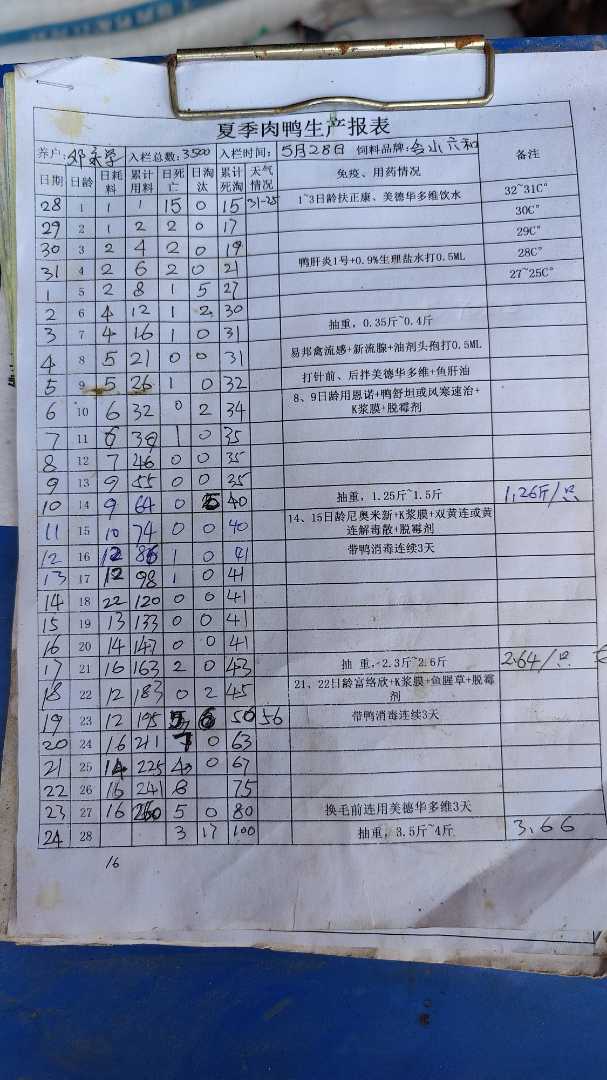 夏季肉鸭生产报表
养户: 邓永学 入栏总数: 3500 入栏时间: 5月28日 饲料品牌: 六和 备注
日期 日龄 日耗料 累计用料 日死亡 日淘汰 累计死淘 天气情况 免疫、用药情况
28 1 1 1 15 0 15 31-25 1~3日龄扶正康、美德华多维饮水 32~31C°
29 2 1 2 2 0 17 30C°
30 3 2 4 2 0 19 29C°
31 4 2 6 2 0 21 鸭肝炎1号+0.9%生理盐水打0.5ML 28C°
1 5 2 8 1 5 27 27~25C°
2 6 4 12 1 2 30
3 7 4 16 1 0 31 抽重,0.35斤~0.4斤
4 8 5 21 0 0 31 易邦禽流感+新流腺+油剂头孢打0.5ML
5 9 5 26 1 0 32 打针前、后拌美德华多维+鱼肝油
6 10 6 32 0 2 34 8、9日龄用恩诺+鸭舒坦或风寒速治+K浆膜+脱霉剂
7 11 6 38 1 0 35
8 12 7 46 0 0 35
9 13 9 55 0 0 35
10 14 9 64 0 5 40 抽重,1.25斤~1.5斤 1.26斤/只
11 15 10 74 0 0 40 14、15日龄尼奥米新+K浆膜+双黄连或黄连解毒散+脱霉剂
12 16 12 86 1 0 41 带鸭消毒连续3天
13 17 12 98 1 0 41
14 18 22 120 0 0 41
15 19 13 133 0 0 41
16 20 14 147 0 0 41
17 21 16 163 2 0 43 抽 重,2.3斤~2.6斤 2.64/只
18 22 12 183 0 2 45 21、22日龄富络欣+K浆膜+鱼腥草+脱霉剂
19 23 12 195 5 6 50 56 带鸭消毒连续3天
20 24 16 211 7 0 63
21 25 14 225 4 0 67
22 26 16 241 8 75
23 27 16 260 5 0 80 换毛前连用美德华多维3天
24 28 3 17 100 抽重,3.5斤~4斤 3.66
16